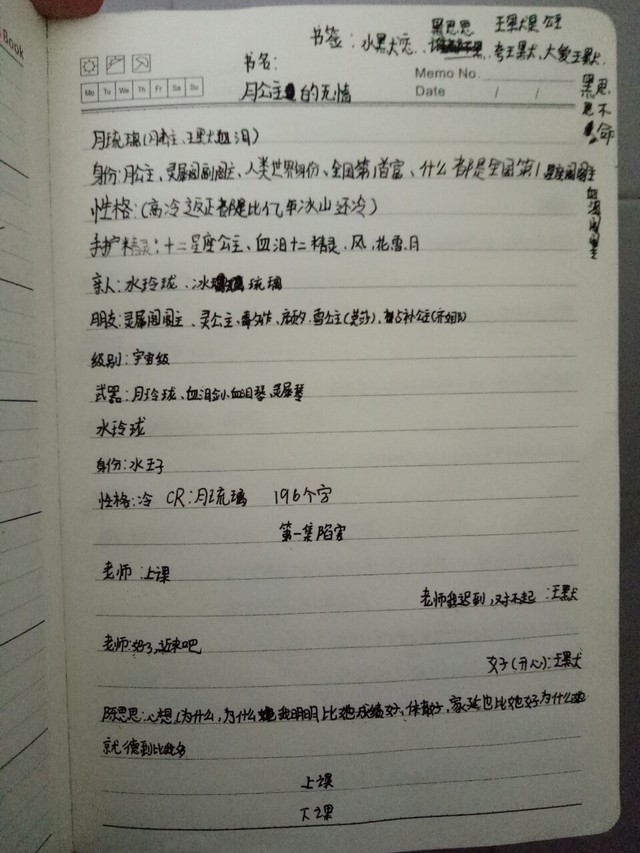 Book
书签：水黑大恋、黑思思 王黑犬是公主
夸王黑犬、大爱王默
黑思思不命
书名：
月公主的无情
Memo No.
Date / /
Mo Tu We Th Fr Sa Su
月琉璃(月公主、王黑犬、血泪)
身份：月公主、灵犀阁副阁主、人类世界身份、全国第1首富、什么都是全国第1 星座阁阁主
血泪阁阁主
性格：(高冷返正都是比亿年冰山还冷)
手护精灵：十二星座公主、血泪十二精灵、风、花雪、月
亲人：水玲珑、冰琉璃
朋友：灵犀阁阁主、灵公主、毒夕绯、庞尊、雪公主(
级别：宇宙级
武器：月玲珑、血泪剑、血泪琴、灵犀琴
水玲珑
身份：水王子
性格：冷 CR：月琉璃 196个字
第一集陷害
老师：上课
老师我迟到，对不起：王默
老师：好了，进来吧
好(开心)：王默
陈思思：心想(为什么，为什么她我明明比她成绩好，体育好，家廷也比她好为什么她
就德到比
上课
下课